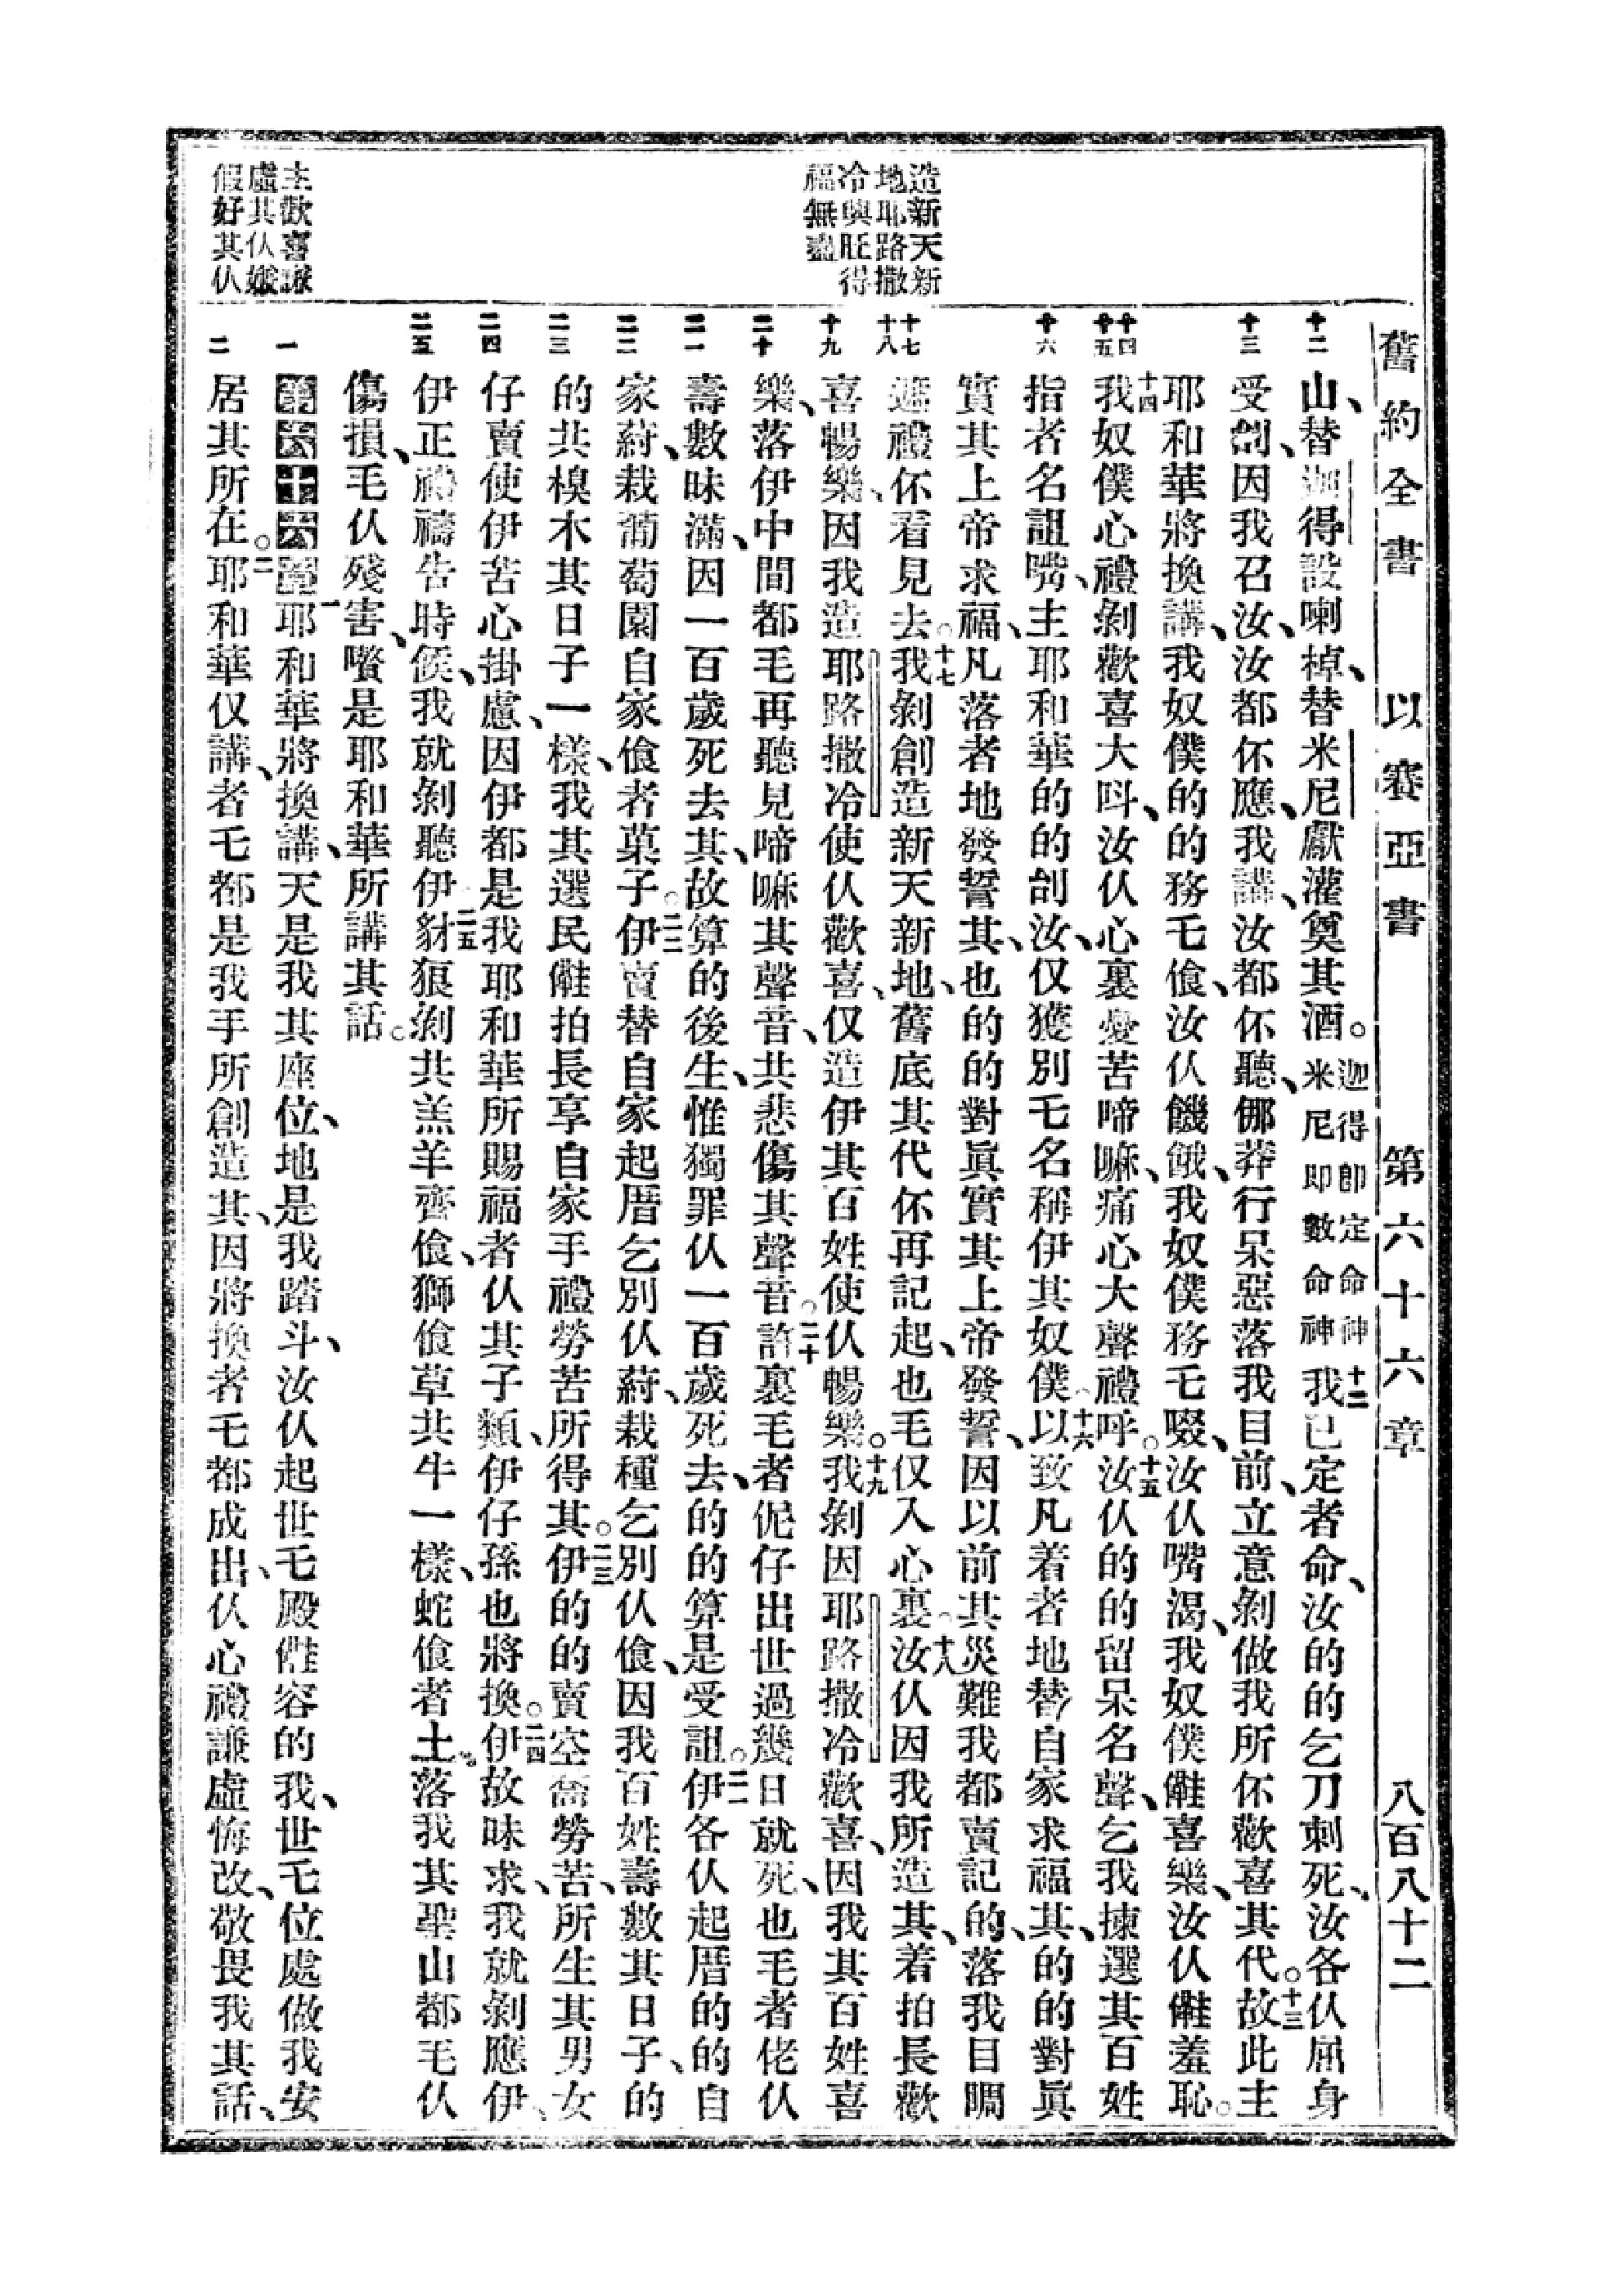 舊約全書 以賽亞書 第六十六章 八百八十二
造新天新
地耶路撒
冷興旺得
福無盡
主歡喜謙
虛其仈嫌
假好其仈
山、替迦得設喇棹、替米尼獻灌奠其酒。迦得卽定命神米尼即數命神十二我已定者命、汝的的乞刀刺死、汝各仈屈身
受創、因我召汝、汝都伓應、我講、汝都伓聽、㑚莽行呆惡落我目前、立意剝做我所伓歡喜其代。十三故此主
耶和華將換講、我奴僕的的務乇飡、汝仈饑餓、我奴僕務乇啜、汝仈嘴渴、我奴僕雖喜樂、汝仈雖羞恥。
十四我奴僕心禮剝歡喜大呌、汝仈心裏憂苦啼嘛、痛心大聲禮呼。十五汝仈的的留呆名聲、乞我揀選其百姓
指者名詛嘴、主耶和華的的刣汝、仅獲別乇名稱伊其奴僕、十六以致凡着者地替自家求福其、的的對眞
實其上帝求福、凡落者地發誓其、也的的對眞實其上帝發誓、因以前其災難我都賣記的、落我目睭
遮禮伓看見去。十七我剝創造新天新地、舊底其代伓再記起、也毛仅入心裏。十八汝仈因我所造其、着拍長歡
喜暢樂、因我造耶路撒冷使仈歡喜、仅造伊其百姓使仈暢樂。十九我剝因耶路撒冷歡喜、因我其百姓喜
樂、落伊中間都毛再聽見啼嘛其聲音、共悲傷其聲音。二十許裏毛者伲仔出世過幾日就死、也毛者佬仈
壽數昧滿、因一百歲死去其、故算的後生、惟獨罪仈一百歲死去、的的算是受詛。二一伊各仈起厝的的自
家蒔、栽葡萄園自家飡者菓子。二二伊賣替自家起厝乞別仈蒔、栽種乞別仈飡、因我百姓壽數其日子、的
的共樹木其日子一樣、我其選民雖拍長享自家手禮勞苦所得其。二三伊的的賣空喬勞苦、所生其男女
仔賣使伊苦心掛慮、因伊都是我耶和華所賜福者仈其子類、伊仔孫也將換。二四伊故昧求、我就剝應伊、
伊正禮禱告時候、我就剝聽伊。二五豺狼剝共羔羊齊飡、獅飡草共牛一樣、蛇飡者土。落我其聖山都毛仈
傷損、毛仈殘害、嚽是耶和華所講其話。
第六十六章 一耶和華將換講、天是我其座位、地是我踏斗、汝仈起世乇殿雖容的我、世乇位處做我安
居其所在。二耶和華仅講、者乇都是我手所創造其、因將換者乇都成出、仈心禮謙虛悔改、敬畏我其話、